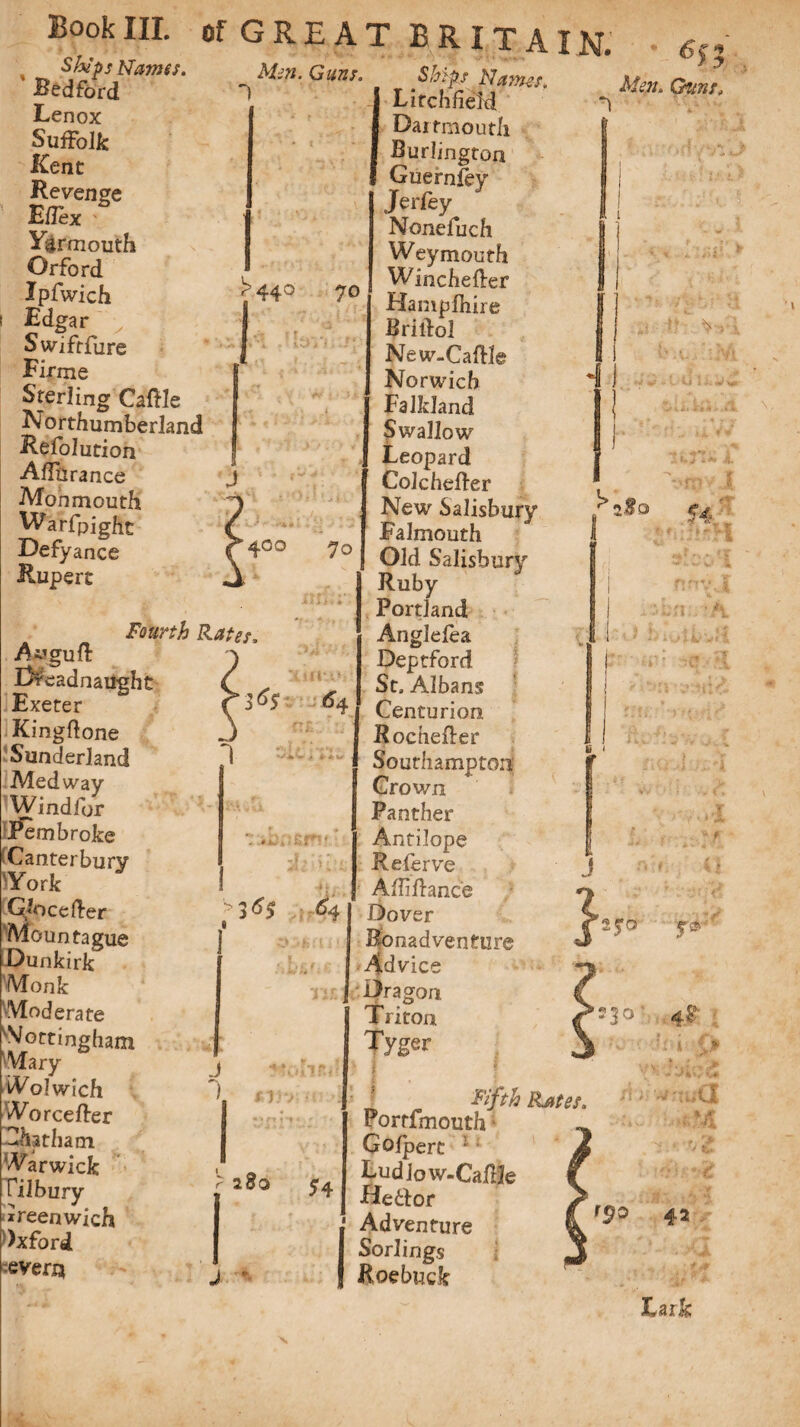 Book III. of GREAT BRITAIN. 653
Ships Names. Men. Guns.
Bedford
Lenox
Suffolk
Kent
Revenge
Essex
Yarmouth
Orford
Ipswich 440 70
Edgar
Swiftsure
Firme
Sterling Castle
Northumberland
Resolution
Assurance
Monmouth
Warspight
Defyance 400 70
Rupert
Fourth Rates.
August
Dreadnaught
Exeter 365 64
Kingstone
Sunderland
Medway
Windsor
Pembroke
Canterbury
York
Glocester 365 64
Mountague
Dunkirk
Monk
Moderate
Nottingham
Mary
Wolwich
Worcester
Chatham
Warwick
Tilbury 280 54
Greenwich
Oxford
severn
Ships Names. Men. Guns.
Litchfield
Dartmouth
Burlington
Guernsey
Jersey
Nonesuch
Weymouth
Winchester
Hampshire
Bristol
New-Castle
Norwich
Falkland
Swallow
Leopard
Colchester
New Salisbury 280 54
Falmouth
Old Salisbury
Ruby
Portland
Anglesea
Deptford
St. Albans
Centurion
Rochester
Southampton
Crown
Panther
Antilope
Reserve
Assistance
Dover 250 50
Bonadventure
Advice
Dragon
Triton 230 48
Tyger
Fifth Rates.
Portsmouth
Gospert
Ludlow-Castle
Hector
Adventure 190 42
Sorlings
Roebuck
Lark